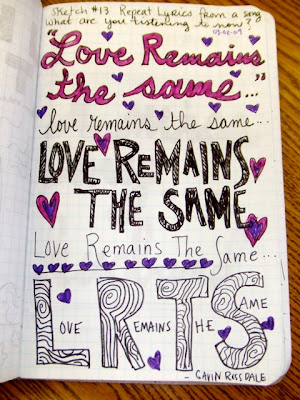 Sketch #13 Repeat Lyrics from a song
What are you listening to now?
03.02.09
"Love Remains
the same..."
love remains the same...
LOVE REMAINS
THE SAME
Love Remains The Same...
LOVE REMAINS THE SAME
- GAVIN ROSSDALE